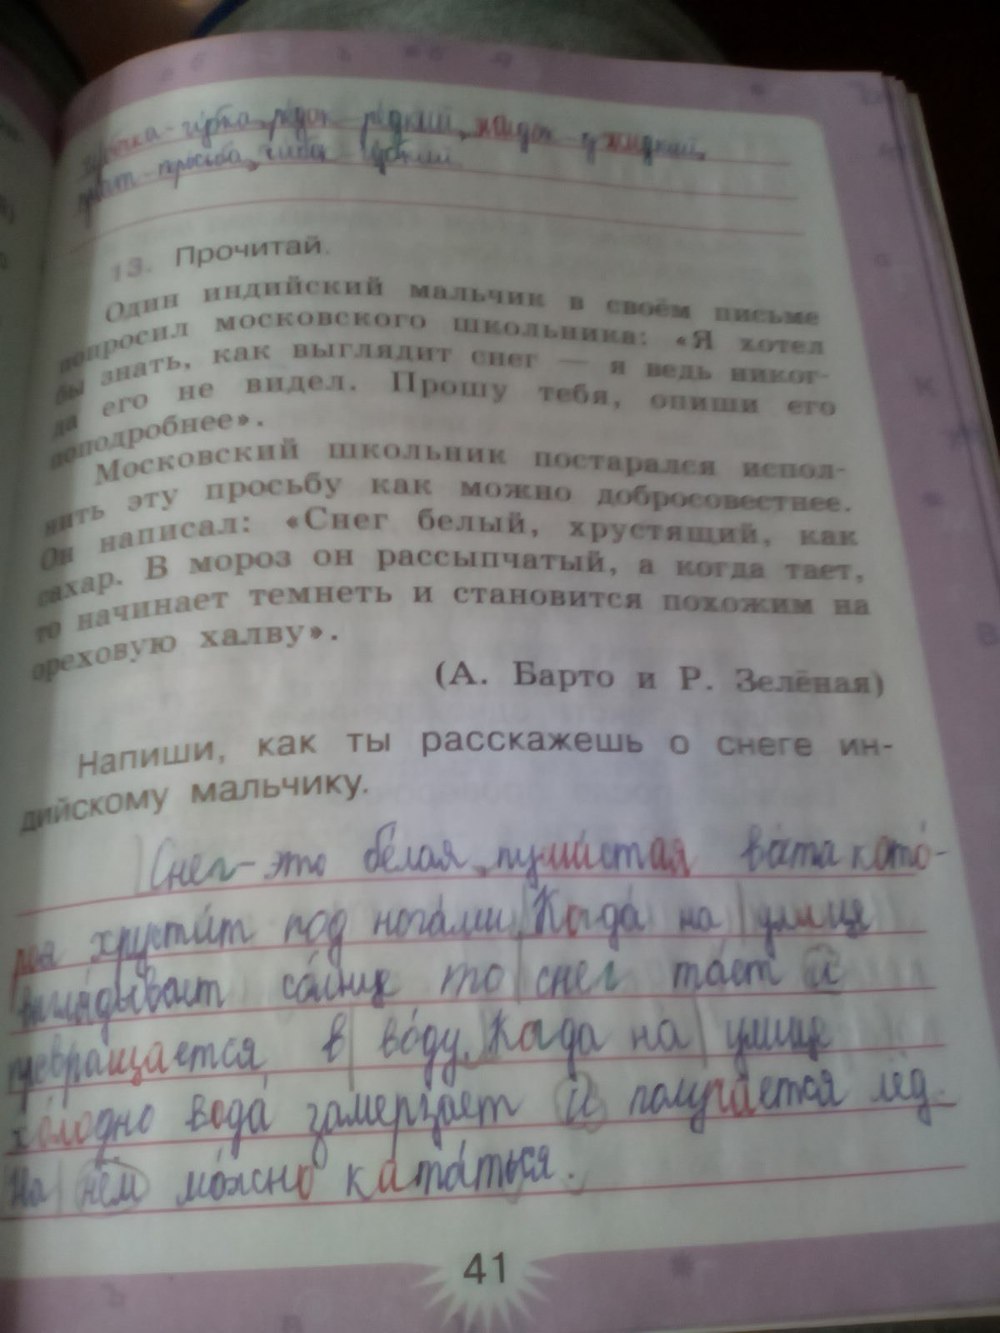 просьба,
13. Прочитай.
Один индийский мальчик в своём письме
попросил московского школьника: «Я хотел
бы знать, как выглядит снег — я ведь никог-
да его не видел. Прошу тебя, опиши его
поподробнее».
Московский школьник постарался испол-
нить эту просьбу как можно добросовестнее.
Он написал: «Снег белый, хрустящий, как
сахар. В мороз он рассыпчатый, а когда тает,
то начинает темнеть и становится похожим на
ореховую халву».
(А. Барто и Р. Зелёная)
Напиши, как ты расскажешь о снеге ин-
дийскому мальчику.
Снег - это белая, пушистая вата кото-
рая хрустит под ногами. Когда на улице
выглядывает то снег тает и
превращается в воду. Когда на улице
холодно вода замерзает и получается лёд.
На нём можно кататься.
41